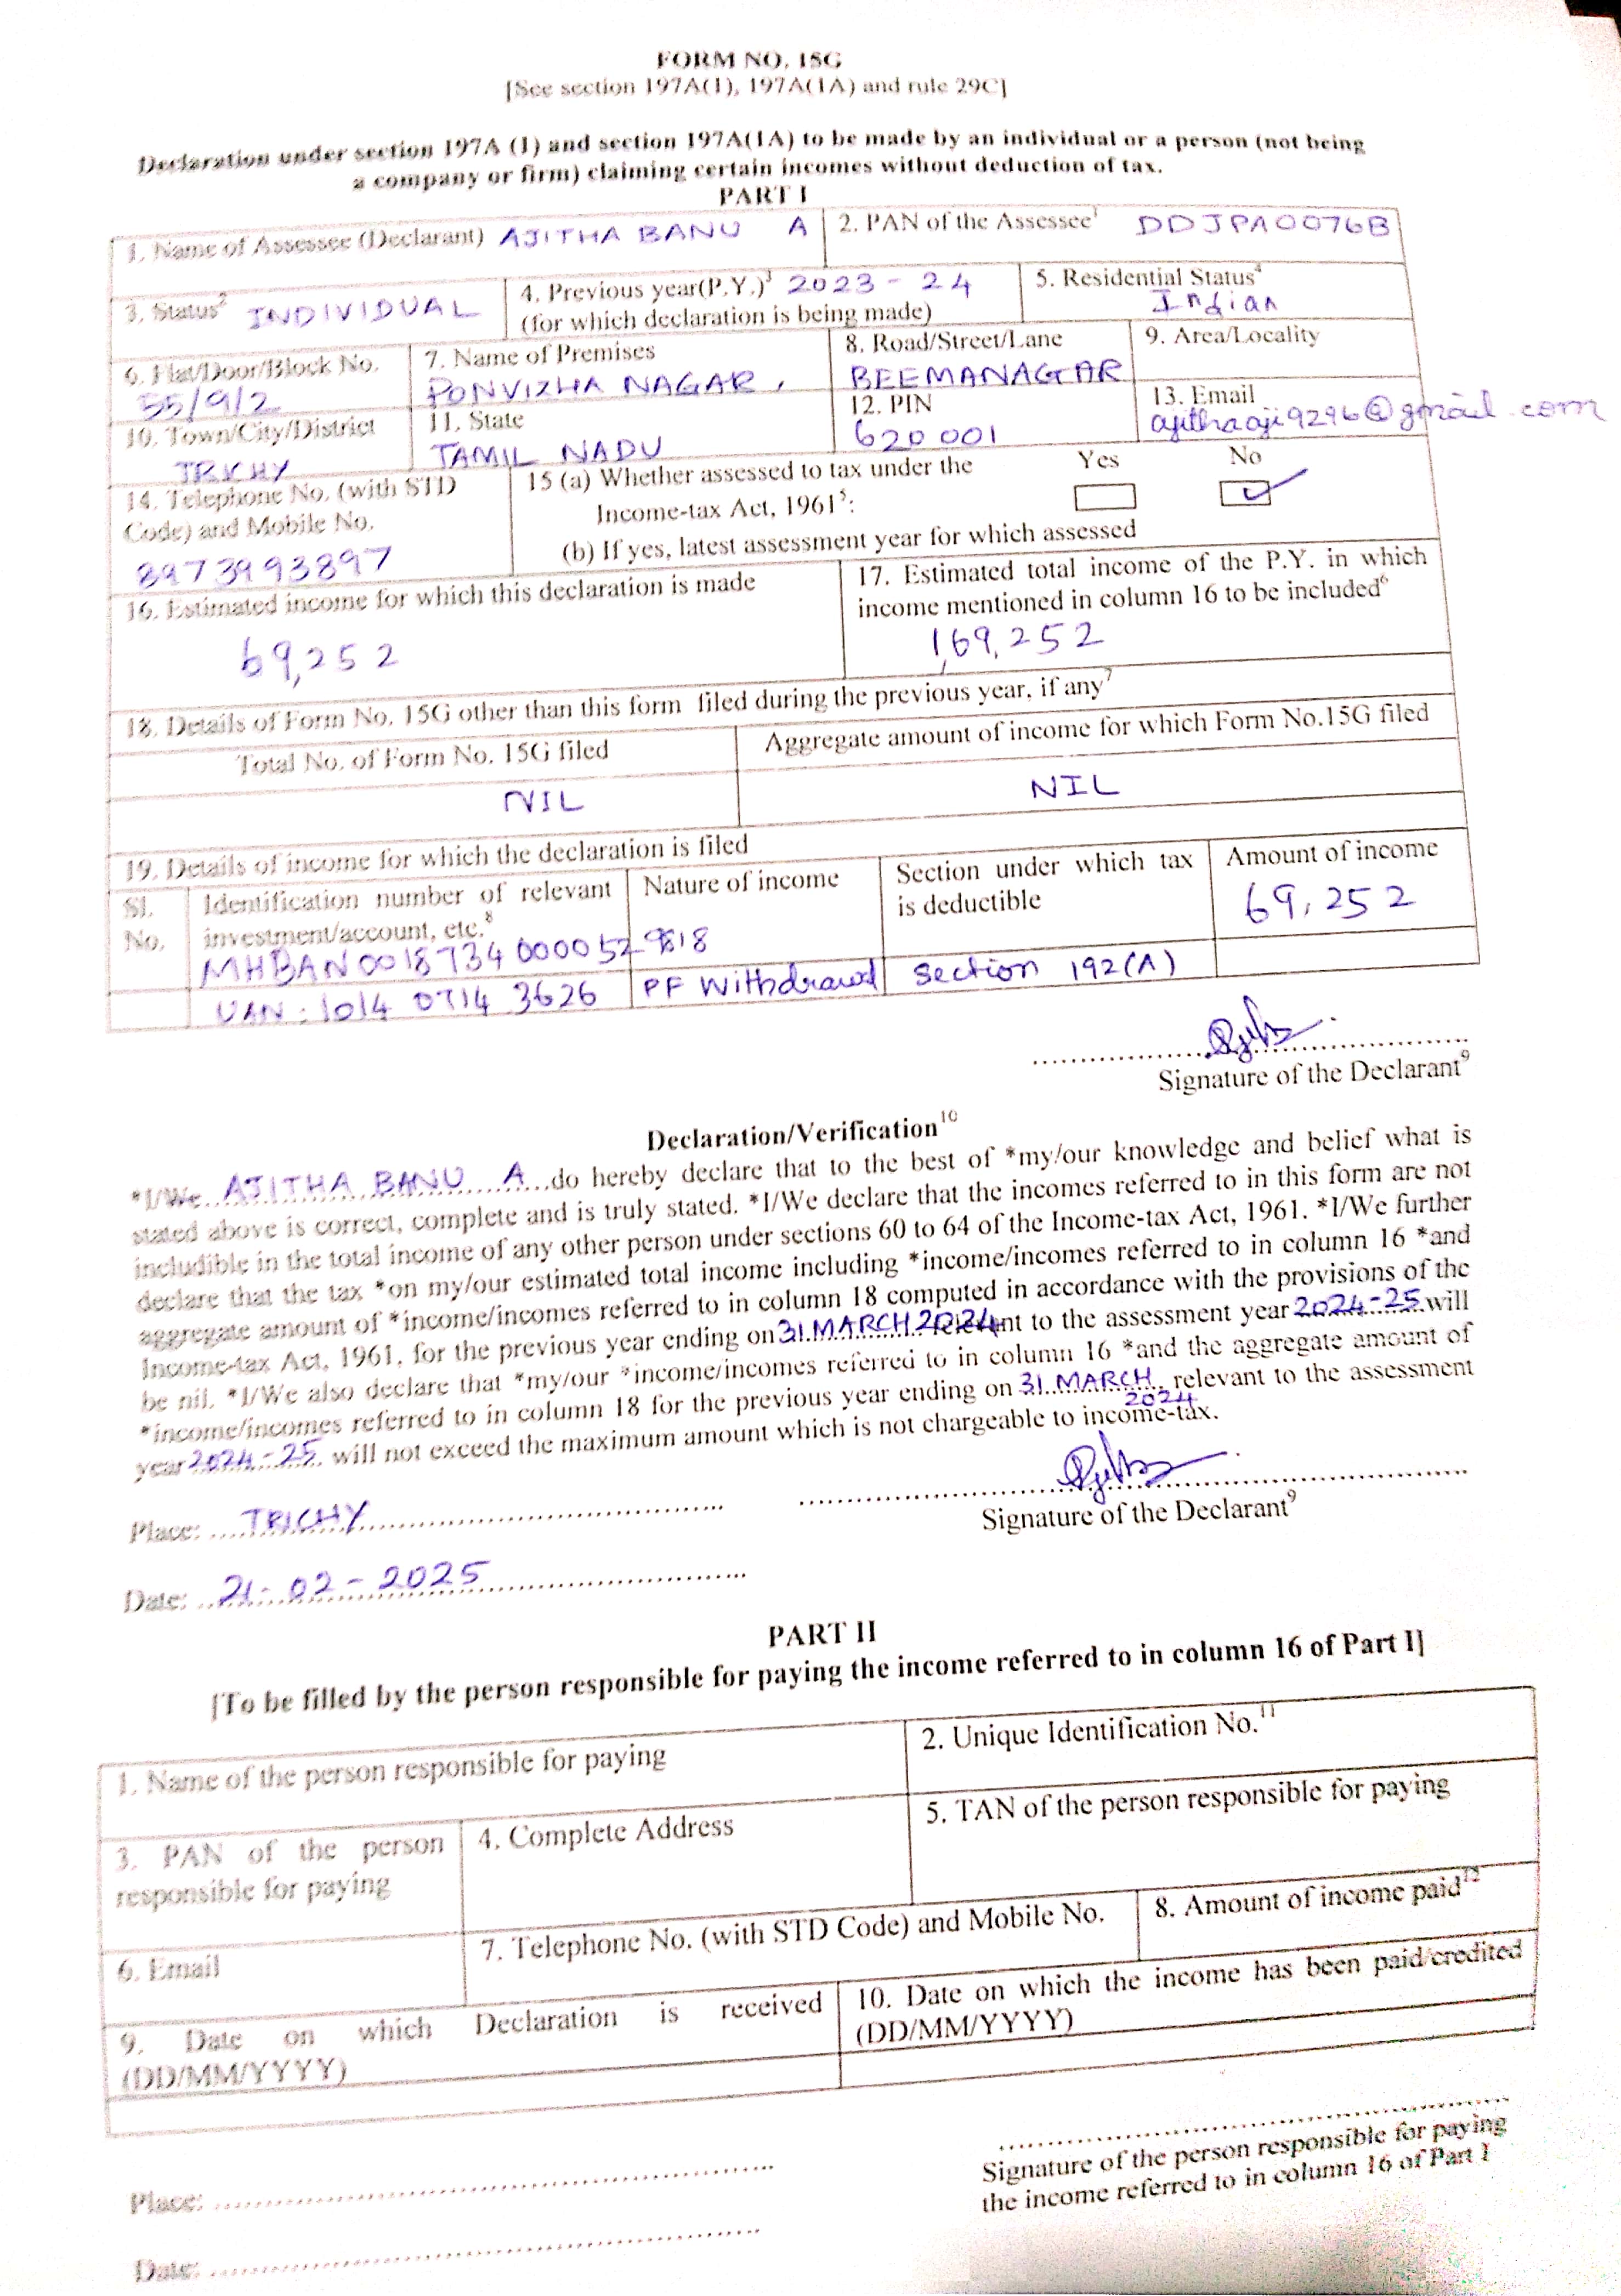 FORM NO. 15G
[See section 197A(1), 197A(1A) and rule 29C]
Declaration under section 197A (1) and section 197A(1A) to be made by an individual or a person (not being
a company or firm) claiming certain incomes without deduction of tax.
PART I
1. Name of Assessee (Declarant) AJITHA BANU A 2. PAN of the Assessee1 DDJPA0076B
3. Status2 INDIVIDUAL 4. Previous year(P.Y.)3 2023 - 24 5. Residential Status4
(for which declaration is being made) Indian
6. Flat/Door/Block No. 7. Name of Premises 8. Road/Street/Lane 9. Area/Locality
55/9/2 PONVIZHA NAGAR, BEEMANAGAR
10. Town/City/District 11. State 12. PIN 13. Email
TRICHY TAMIL NADU 620 001 ajithaaji9296@gmail.com
14. Telephone No. (with STD 15 (a) Whether assessed to tax under the Yes No
Code) and Mobile No. Income-tax Act, 19615:
8973993897 (b) If yes, latest assessment year for which assessed
16. Estimated income for which this declaration is made 17. Estimated total income of the P.Y. in which
income mentioned in column 16 to be included6
69,252 1,69,252
18. Details of Form No. 15G other than this form filed during the previous year, if any7
Total No. of Form No. 15G filed Aggregate amount of income for which Form No.15G filed
NIL NIL
19. Details of income for which the declaration is filed
Sl. Identification number of relevant Nature of income Section under which tax Amount of income
No. investment/account, etc.8 is deductible 69,252
MHBAN00187340000529818
UAN : 1014 0714 3626 PF Withdrawal Section 192(A)
Signature of the Declarant9
Declaration/Verification10
*I/We AJITHA BANU A do hereby declare that to the best of *my/our knowledge and belief what is
stated above is correct, complete and is truly stated. *I/We declare that the incomes referred to in this form are not
includible in the total income of any other person under sections 60 to 64 of the Income-tax Act, 1961. *I/We further
declare that the tax *on my/our estimated total income including *income/incomes referred to in column 16 *and
aggregate amount of *income/incomes referred to in column 18 computed in accordance with the provisions of the
Income-tax Act, 1961, for the previous year ending on 31 MARCH 2024 relevant to the assessment year 2024-25 will
be nil. *I/We also declare that *my/our *income/incomes referred to in column 16 *and the aggregate amount of
*income/incomes referred to in column 18 for the previous year ending on 31 MARCH 2024 relevant to the assessment
year 2024-25 will not exceed the maximum amount which is not chargeable to income-tax.
Place: TRICHY
Signature of the Declarant9
Date: 21-02-2025
PART II
[To be filled by the person responsible for paying the income referred to in column 16 of Part I]
1. Name of the person responsible for paying 2. Unique Identification No.11
3. PAN of the person 4. Complete Address 5. TAN of the person responsible for paying
responsible for paying
6. Email 7. Telephone No. (with STD Code) and Mobile No. 8. Amount of income paid12
9. Date on which Declaration is received 10. Date on which the income has been paid/credited
(DD/MM/YYYY) (DD/MM/YYYY)
Signature of the person responsible for paying
the income referred to in column 16 of Part I
Place:
Date: